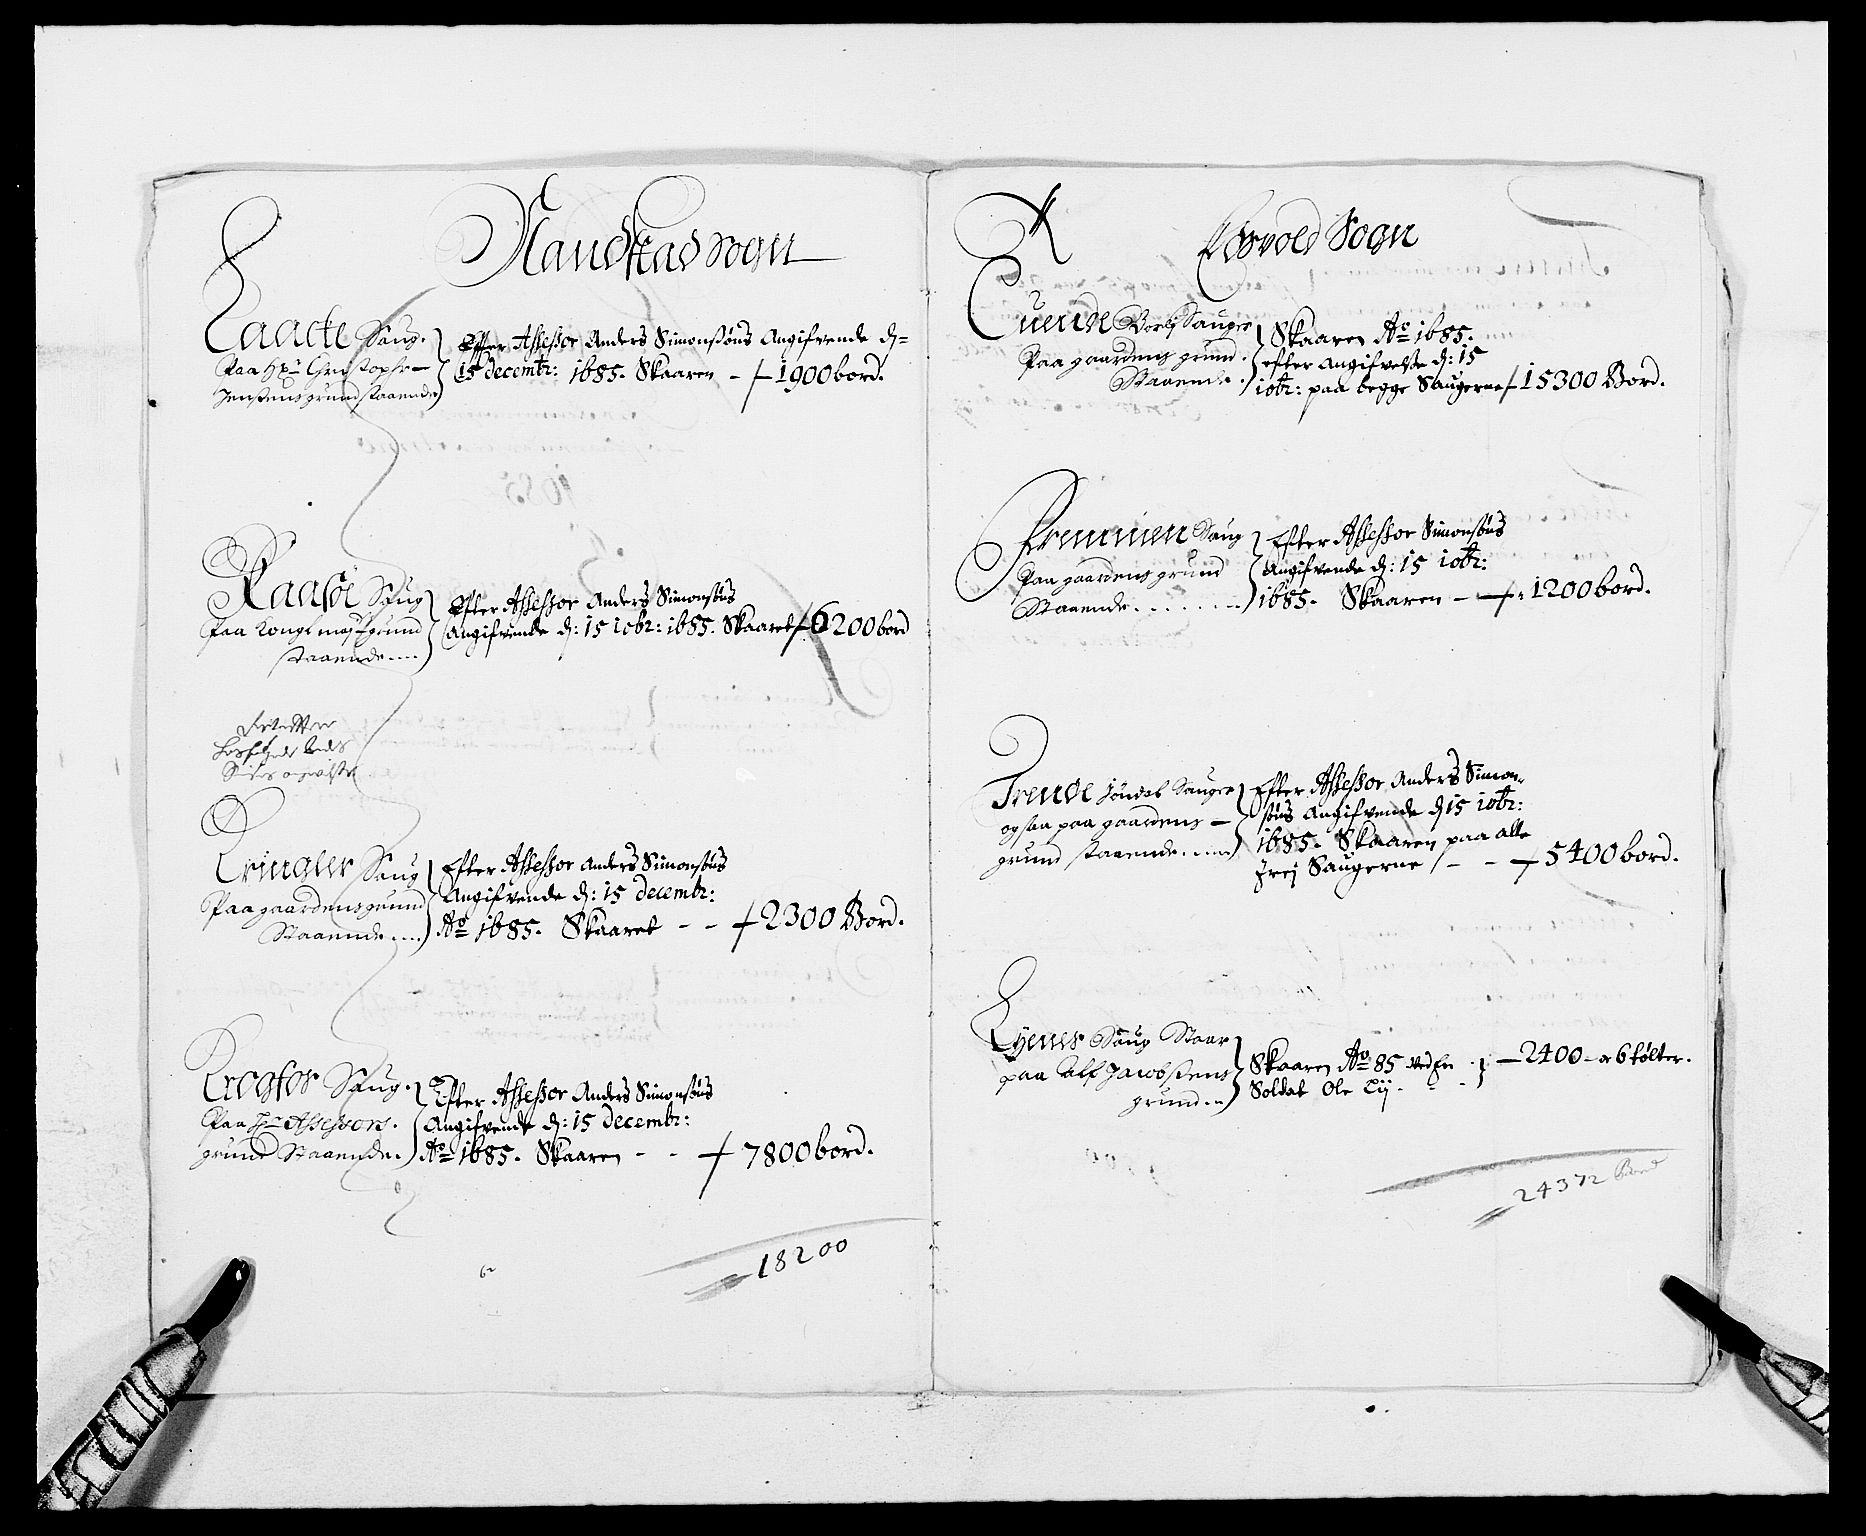 Naudstad Sogn
Laache Saug.
Paa Hr: Christopher
Jensens grund staaende
Effter Assessor Anders Simonsøns Angifvende d-
15 decembr: 1685. Skaaren - 1900 bord.
Raasøe Saug
Paa Kongl may:tz grund
staaende....
Efter Assessor Anders Simonsøns
Angifvende d: 15 10br: 1685. Skaaret 6200 bord
Kringler Saug
Paa gaardens grund
Staaende....
Efter Assessor Anders Simonsøns
Angifvende d: 15 decembr:
Ao 1685. Skaaret - - 2300 Bord.
Krogfos Saug.
Paa Hr Assessors.
grund Staaende.
Efter Assessor Anders Simonsøns
Angifvende d: 15 decembr:
Ao 1685. Skaaren - - 7800 bord.
18200
Edsvold Sogn
Tuende Sauger
Paa gaardens grund.
Staaende.
Skaaren Ao 1685.
efter Angifvelse d: 15
10br: paa begge Saugerne 15300 Bord.
Saug
Paa gaardens grund
Staaende........
Efter Assessor Simonsøns
Angifvende d: 15 10br:
1685. Skaaren - 1200 bord.
Trende Jøndal Sauger
og saa paa gaardens -
grund staaende.....
Efter Assessor Anders Simon-
søns Angifvende d 15 10br:
1685. Skaaren paa alle
Trej Saugerne - - 5400 bord.
Saug Staar
paa Alf Jacobsens
grund..
Skaaren Ao 85 ved en
Soldat Ole - -
2400 - 6 tølter.
24372 Bord